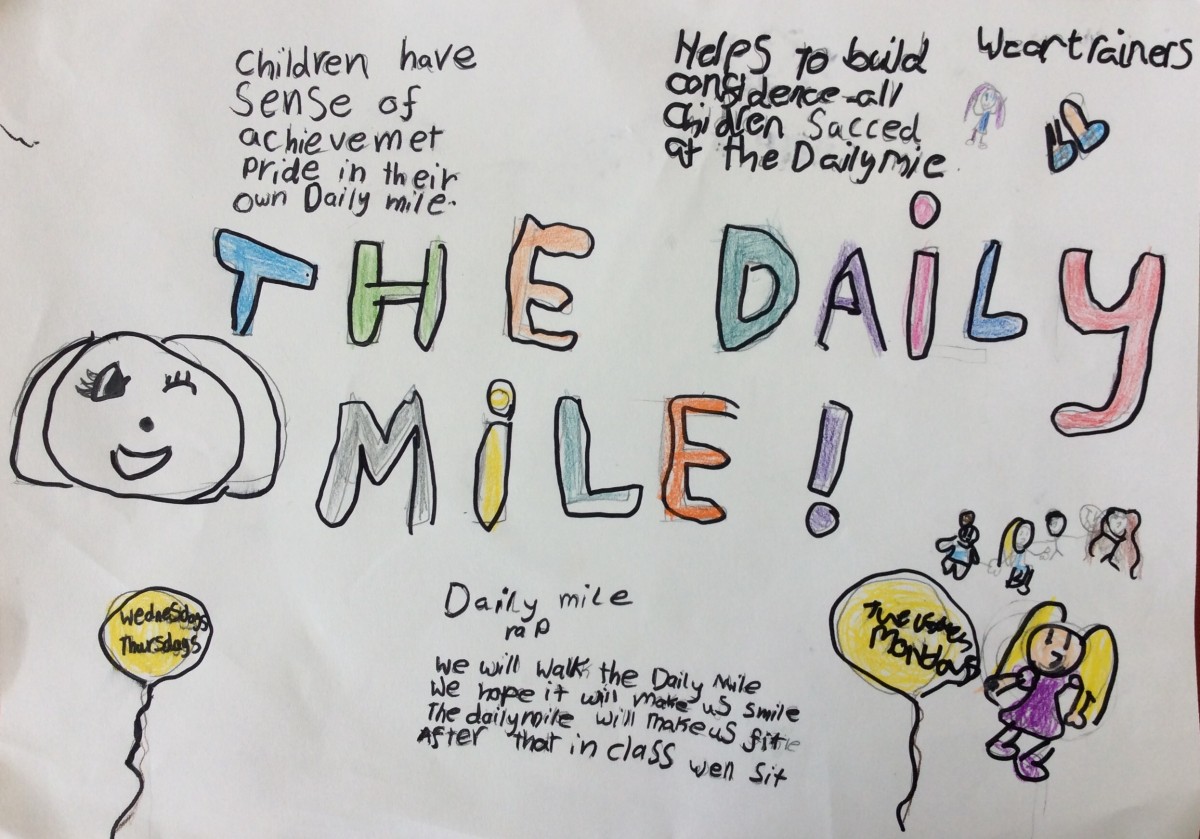 Children have
Sense of
achievemet
Pride in their
own Daily mile.
Helps to build
confidence-all
Children Sacced
at the Dailymie
Wear trainers
THE DAiLy
MiLE!
Wednesdays
Thursdays
Daily mile
rap
we will walk the Daily Mile
We hope it will make us smile
The dailymile will make us fit
After that in class well sit
Mondays